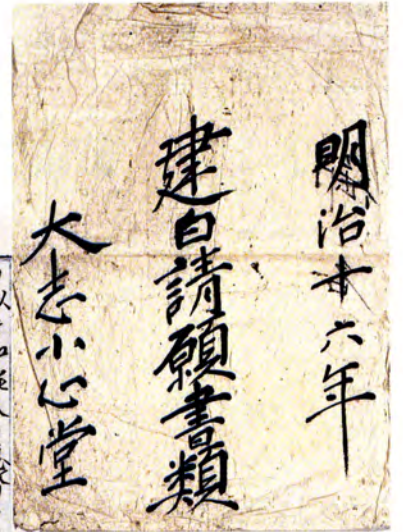 明治廿六年
建白請願書類
大志小心堂